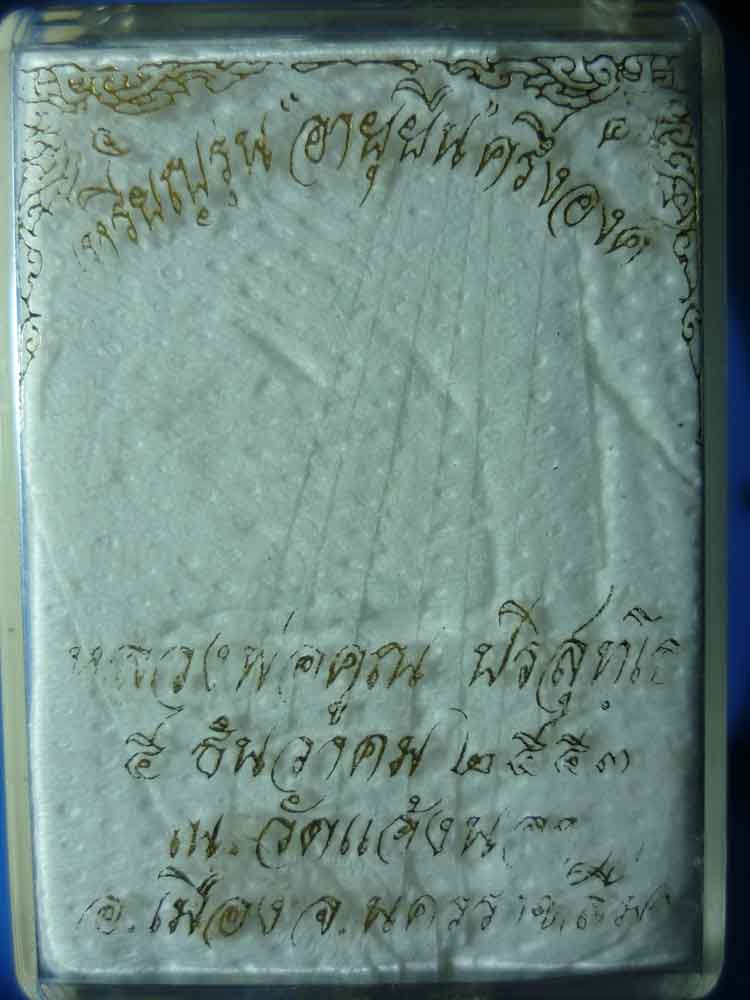 เหรียญรุ่น "อายุยืน" ครึ่งองค์
หลวงพ่อคูณ ปริสุทฺโธ
๕ ธันวาคม ๒๕๕๓
ณ. วัดแจ้งนอก
อ.เมือง จ.นครราชสีมา